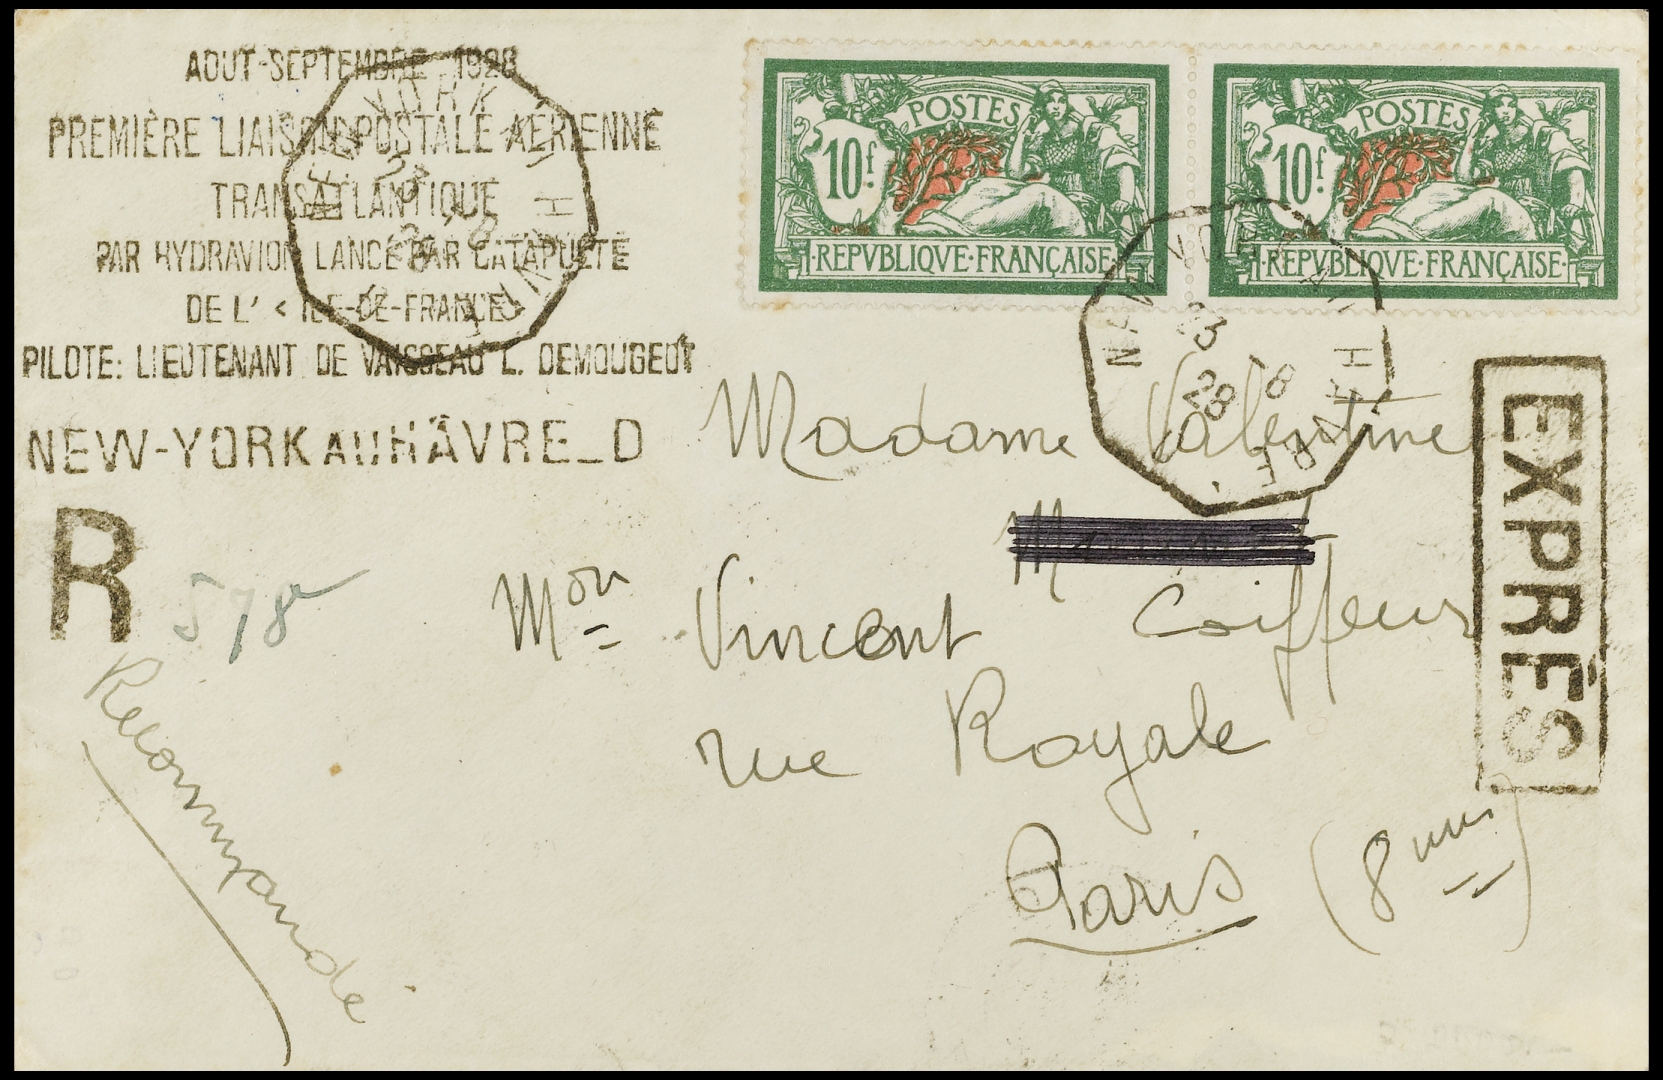 AOUT-SEPTEMBRE 1928
PREMIÈRE LIAISON POSTALE AÉRIENNE
TRANSATLANTIQUE
PAR HYDRAVION LANCÉ PAR CATAPULTE
DE L' < ILE-DE-FRANCE>
PILOTE: LIEUTENANT DE VAISSEAU L. DEMOUGEOT
NEW-YORK AU HÂVRE_D
NEW YORK AU HAVRE
23 8
28
POSTES
10f.
·REPVBLIQVE·FRANÇAISE·
POSTES
10f.
·REPVBLIQVE·FRANÇAISE·
NEW YORK AU HAVRE
23 8
28
EXPRÈS
R
578
Recommandé
Madame Valentine
Mon Vincent Coiffeur
rue Royale
Paris (8me)